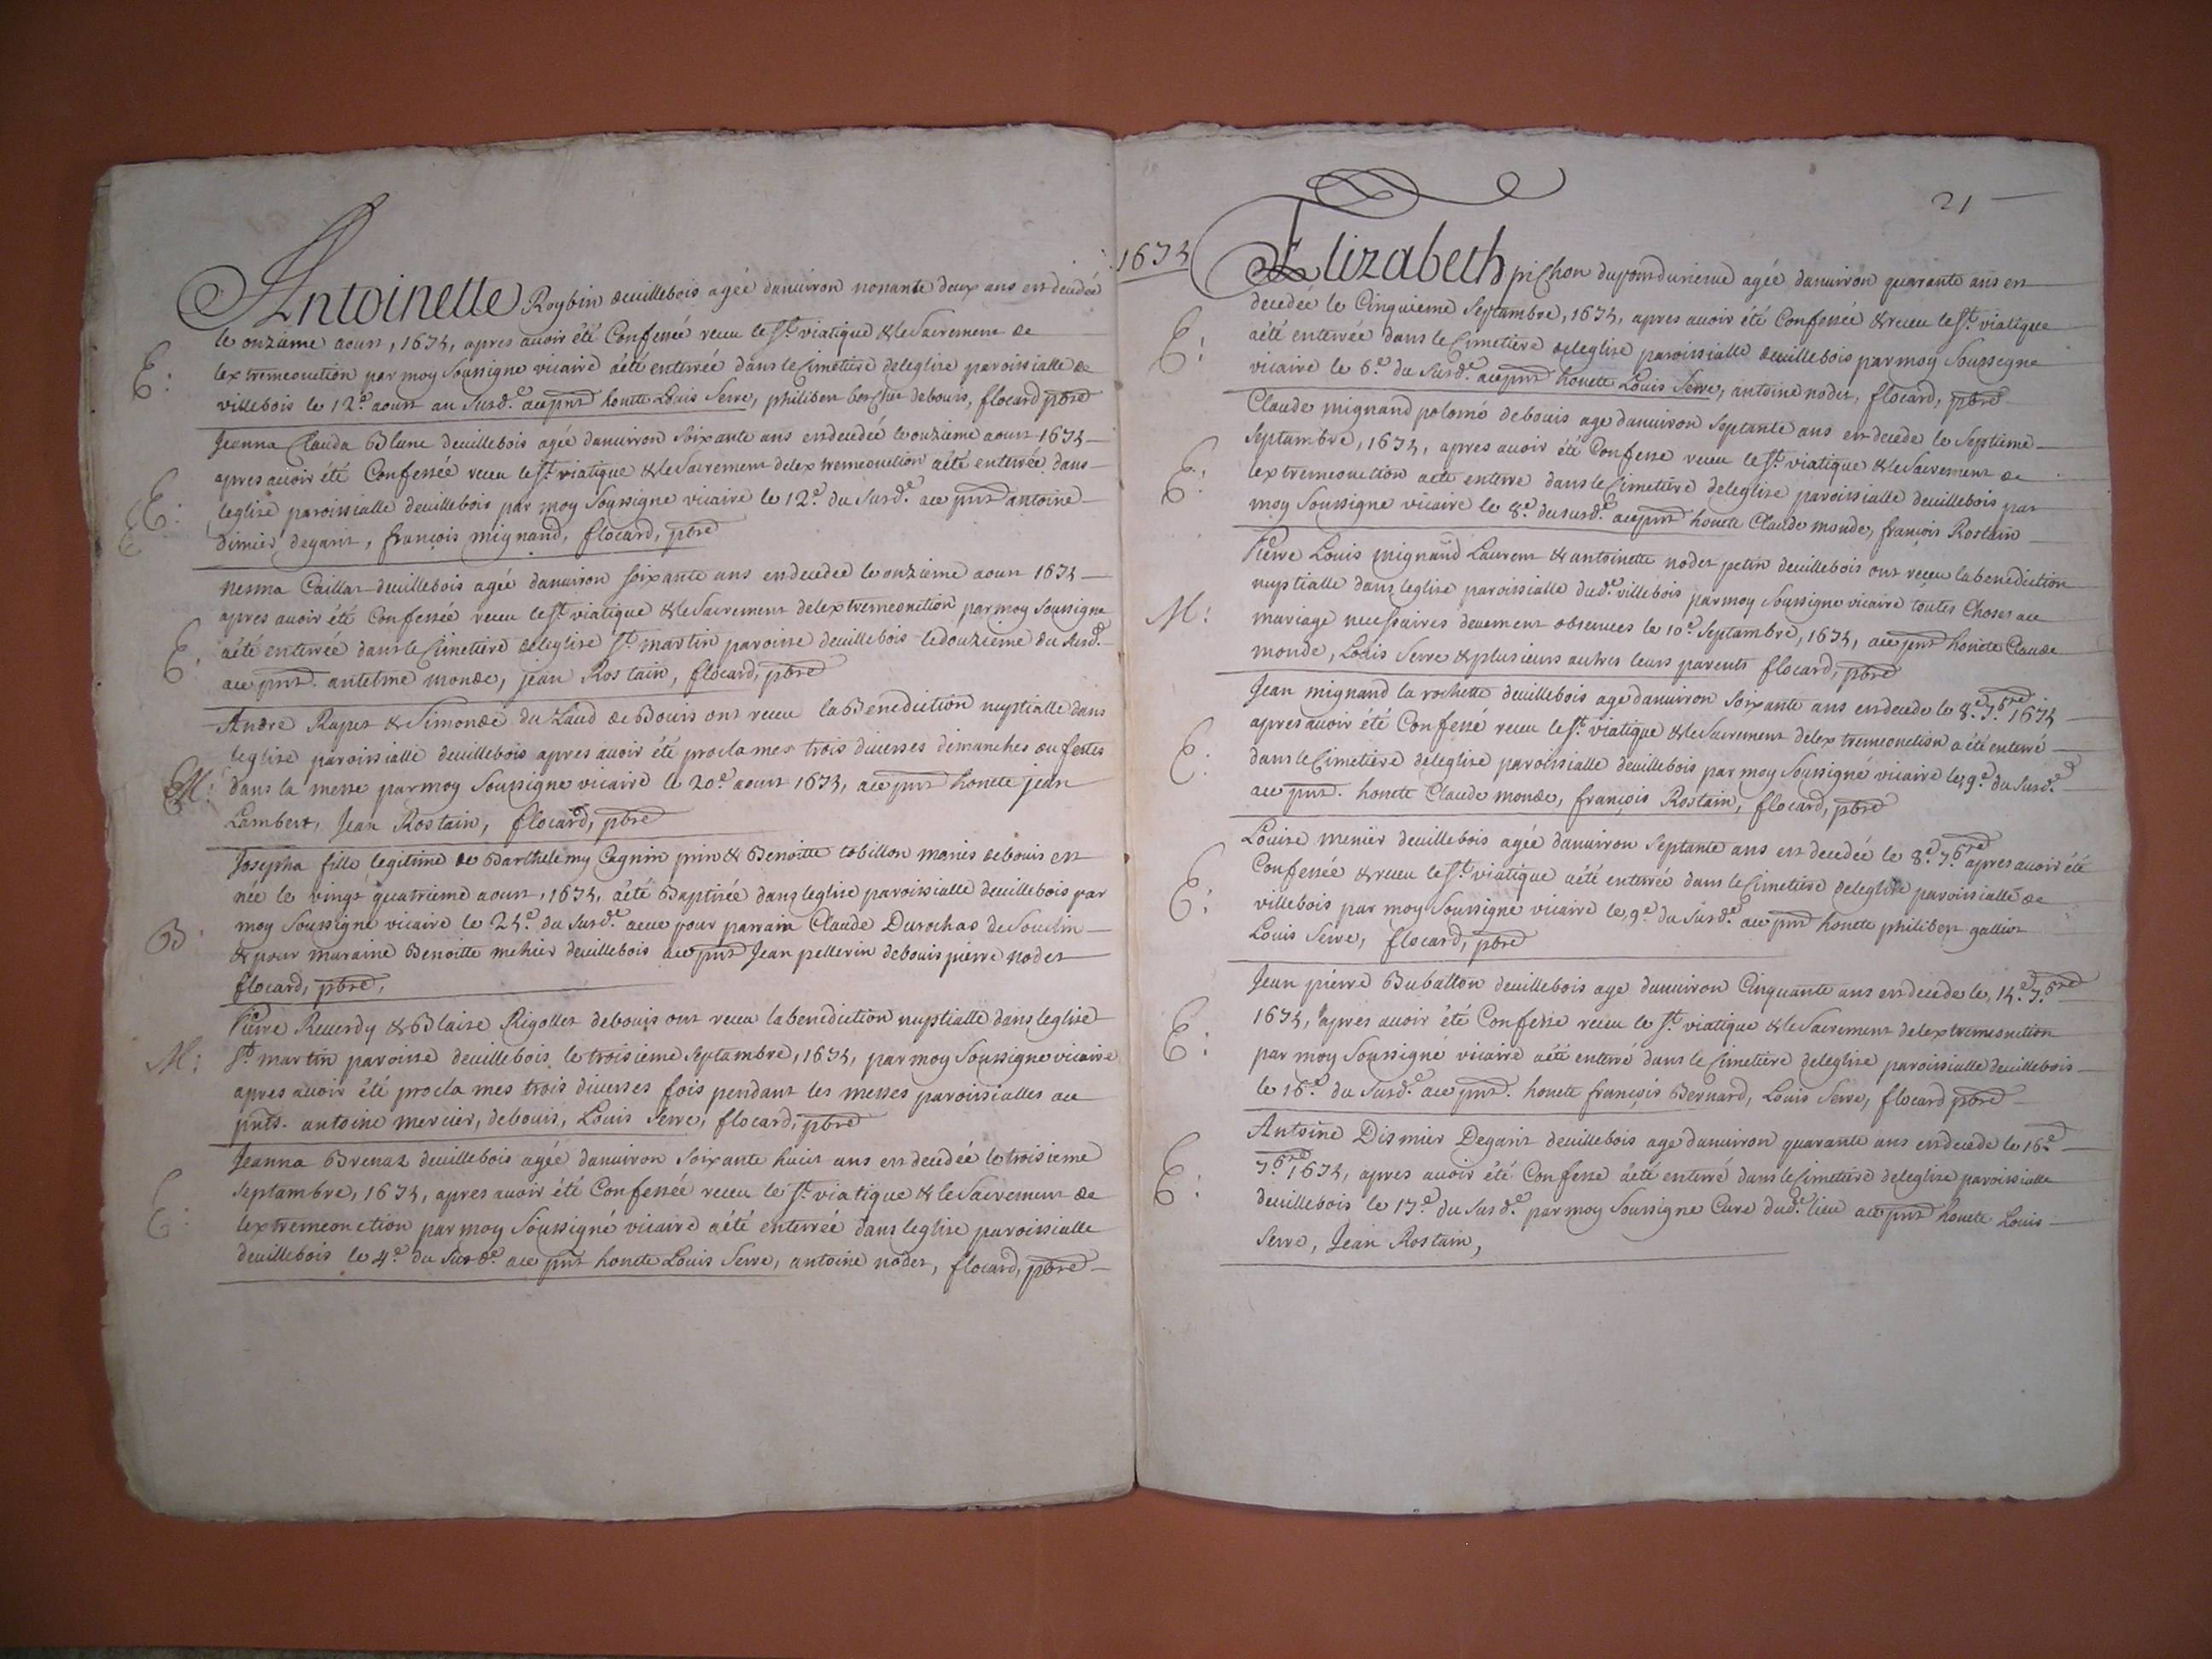 21
1675
Antoinette Roybin deuillebois agée danuiron nonante deux ans est decedée
le onziéme aoust, 1675, apres auoir été Confessée receu le St. viatique & le Sacrement de
E: lextremeonction par moy Soussigne vicaire aété enterrée dans le Cimetiere deleglise paroissialle de
villebois le 12.e aoust au Susd.e auepnt honete Louis Serre, philibert bercher debouis, flocard pbre
Jeanna Clauda Blanc deuillebois agée danuiron Soixante ans est decedée le onzieme aoust 1675
apres auoir été Confessée receu le St. viatique & le Sacrement delextremeonction aété enterrée dans
E: leglise paroissialle deuillebois par moy Soussigne vicaire le 12.e du Susd.e aue pnt antoine
dimier degarit, françois mignand, flocard, pbre
nesma Caillat deuillebois agée danuiron soixante ans est decedée le onzieme aoust 1675
apres auoir été Confessée receu le St. viatique & le Sacrement delextremeonction par moy Soussigne
E: aété enterrée dans le Cimetiere deleglise St. martin paroisse deuillebois le douzieme du Susd.
aue pnt. antelme monde, jean Rostain, flocard, pbre
Andre Rapet & Simonde du Laud de Bouis ont receu la Benediction nuptialle dans
leglise paroissialle deuillebois apres auoir été proclames trois diuerses dimanches ou festes
M: dans la messe par moy Soussigne vicaire le 20.e aoust 1675, aue pnt honete jean
Lambert, Jean Rostain, flocard, pbre
Josepha fille legitime de Barthelemy Cagnin prin & Benoitte tobillon maries debouis est
née le vingt quatrieme aoust, 1675, aété Baptisée dans leglise paroissialle deuillebois par
B: moy Soussigne vicaire le 25.e du Susd.e aeue pour parrain Claude Durochas de Souclin
& pour maraine Benoitte mehier deuillebois aue pnt Jean pellerin debouis pierre nodet
flocard, pbre,
Pierre Reuerdy & Blaise Rigollet debouis ont receu la benediction nuptialle dans leglise
M: St. martin paroisse deuillebois, le troisieme Septambre, 1675, par moy Soussigne vicaire
apres auoir été proclames trois diuerses fois pendant les messes paroissialles aue
pnts. antoine mercier, debouis, Louis Serre, flocard, pbre
Jeanna Brenaz deuillebois agée danuiron Soixante huict ans est decedée le troisieme
Septambre, 1675, apres auoir été Confessée receu le St. viatique & le Sacrement de
E: lextremeonction par moy Soussigné vicaire aété enterrée dans leglise paroissialle
deuillebois le 4.e du Susd.e aue pnt honete Louis Serre, antoine nodet, flocard, pbre
Elizabeth pichon agée danuiron quarante ans est
decedée le Cinquieme Septambre, 1675, apres auoir été Confessée & receu le St. viatique
E: aété enterrée dans le Cimetiere deleglise paroissialle deuillebois par moy Soussegne
vicaire le 6.e du Susd.e auepnt honete Louis Serre, antoine nodet, flocard, pbre
Claude mignand polomé debouis age danuiron Septante ans est decede le Septieme
Septambre, 1675, apres auoir été Confesse receu le St. viatique & le Sacrement de
E: lextremeonction aété enterre dans le Cimetiere deleglise paroissialle deuillebois par
moy Soussigne vicaire le 8.e dususd.e auepnt honete Claude monde, françois Rostain
Pierre Louis mignand Laurent & antoinette nodet petin deuillebois ont receu la benediction
nuptialle dans leglise paroissialle dud.e villebois par moy Soussigne vicaire toutes Choses au
M: mariage necessaires deuement obseruees le 10.e Septambre, 1675, aue pnt honete Claude
monde, Louis Serre & plusieurs autres leurs parents flocard, pbre
Jean mignand la rochette deuillebois age danuiron Soixante ans est decede le 8.e 7.bre 1675
apres auoir été Confessé receu le St. viatique & le Sacrement delextremeonction a été enterré
E: dans le Cimetiere deleglise paroissialle deuillebois par moy Soussigné vicaire le 9.e du Susd.e
aue pnt. honete Claude monde, françois Rostain, flocard, pbre
Louise menier deuillebois agée danuiron Septante ans est decedée le 8.e 7.bre apres auoir été
Confessée & receu le St. viatique aété enterrée dans le Cimetiere deleglise paroissialle de
E: villebois par moy Soussigne vicaire le 9.e du Susd.e aue pnt honete philibert galliot
Louis Serre, flocard, pbre
Jean pierre Bubatton deuillebois age danuiron Cinquante ans est decede le, 15.e 7.bre
1675, apres auoir été Confesse receu le St. viatique & le Sacrement delextremeonction
E: par moy Soussigné vicaire aété enterré dans le Cimetiere deleglise paroissialle deuillebois
le 16.e du Susd.e aue pnt. honete françois Bernard, Louis Serre, flocard pbre
Antoine Dismier Degarit deuillebois age danuiron quarante ans est decede le 16.e
E: 7.bre 1675, apres auoir été Confesse aété enterré dans le Cimetiere deleglise paroissialle
deuillebois le 17.e du Susd.e par moy Soussigne Cure dud.e lieu aue pnt honete Louis
Serre, Jean Rostain,